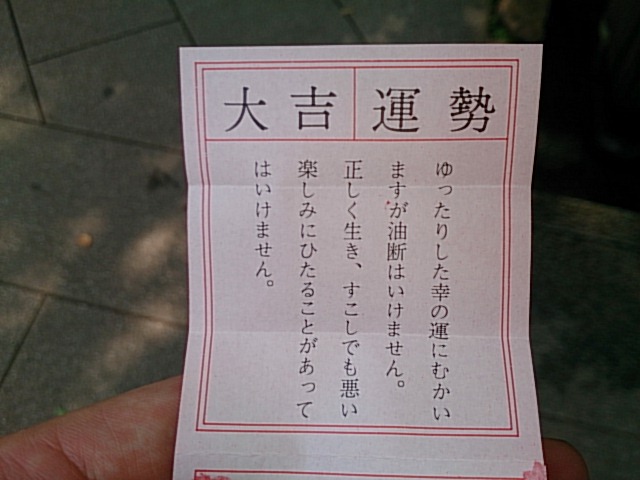 勢運 吉大
ゆったりした幸の運にむかい
ますが油断はいけません。
正しく生き、すこしでも悪い
楽しみにひたることがあって
はいけません。